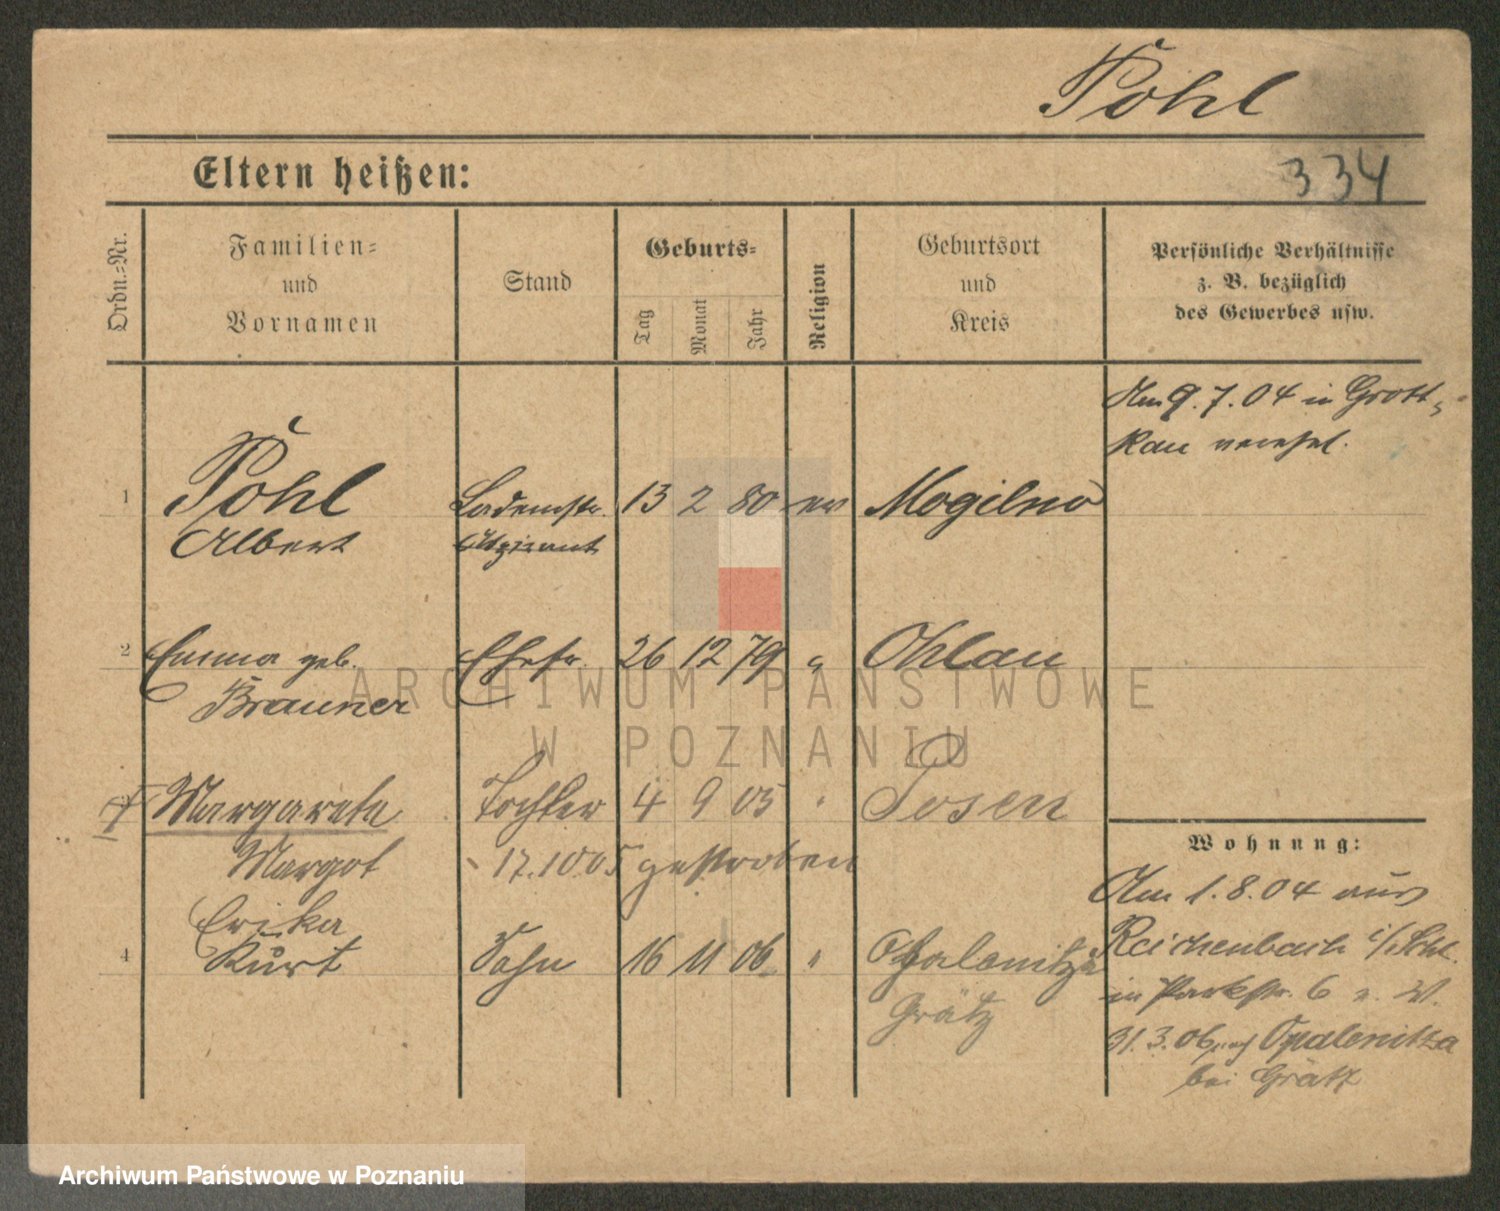 Pohl
Eltern heißen:
334
Ordn.-Nr.
Familien- und Vornamen
Stand
Geburts-
Tag
Monat
Jahr
Religion
Geburtsort und Kreis
Persönliche Verhältnisse z. B. bezüglich des Gewerbes usw.
Am 9.7.04 in Grott-
kau verehel.
1 Pohl Lademstr. 13 2 80 ev Mogilno
Albert Aspirant
2 Emma geb. Ehefr. 26 12 79 " Ohlau
Brauner
ARCHIWUM PAŃSTWOWE
W POZNANIU
Margarete Tochter 4 9 05 " Posen
Margot 17.10.05 gestorben
Erika
4 Kurt Sohn 16 11 06 " Opalenitza
Grätz
Wohnung:
Am 1.8.04 aus
Reichenbach i/Schl.
in Parkstr. 6 z. W.
31.3.06 nach Opalenitza
bei Grätz
Archiwum Państwowe w Poznaniu